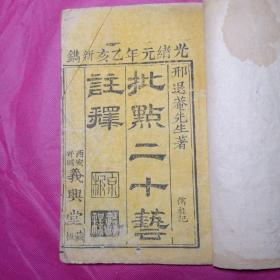 光緒元年乙亥新鐫
邢退菴先生著
批點二十藝
註釋
京板
西安
義興堂
藏板